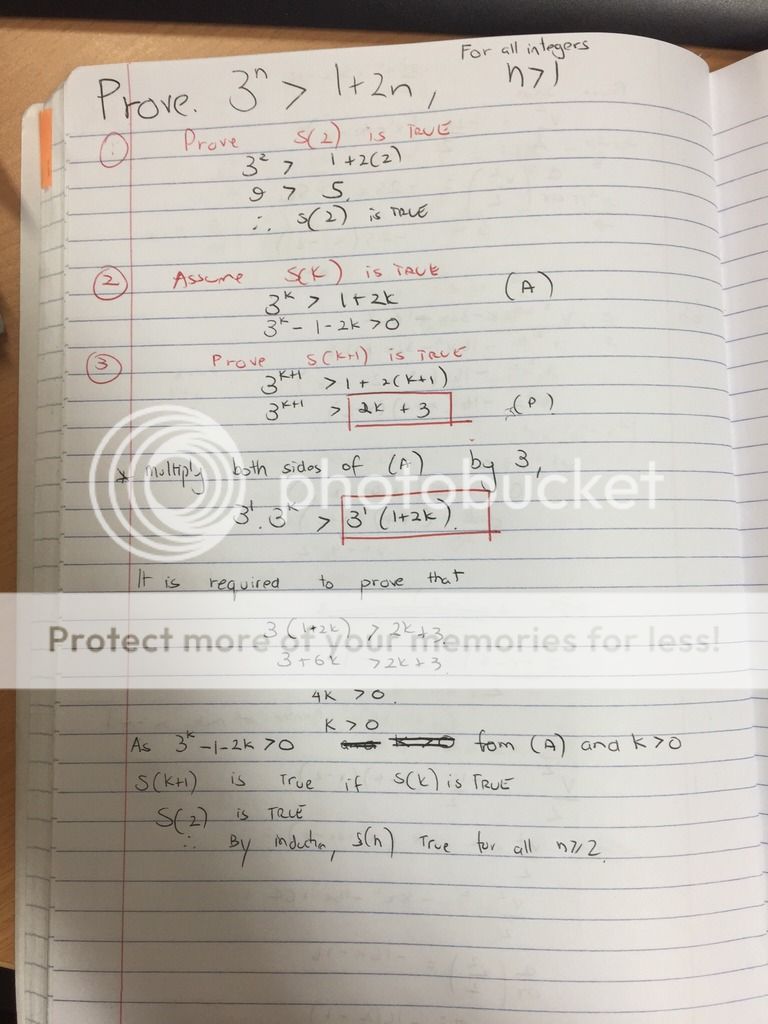 For all integers
Prove. 3ⁿ > 1+2n, n>1
1 Prove S(2) is TRUE
3² > 1+2(2)
9 > 5.
∴ S(2) is TRUE
2 Assume S(K) is TRUE
3ᵏ > 1+2k (A)
3ᵏ - 1 - 2k > 0
3 Prove S(k+1) is TRUE
3ᵏ⁺¹ > 1 + 2(k+1)
3ᵏ⁺¹ > 2k + 3 (P)
* multiply both sides of (A) by 3,
photobucket
3¹ . 3ᵏ > 3¹ (1+2k).
It is required to prove that
3(1+2k) > 2k+3.
Protect more of your memories for less!
3+6k > 2k+3.
4k > 0.
K > 0
As 3ᵏ-1-2k > 0 fom (A) and k>0
S(k+1) is True if S(k) is TRUE
S(2) is TRUE
∴ By inductn, S(n) True for all n≥2.